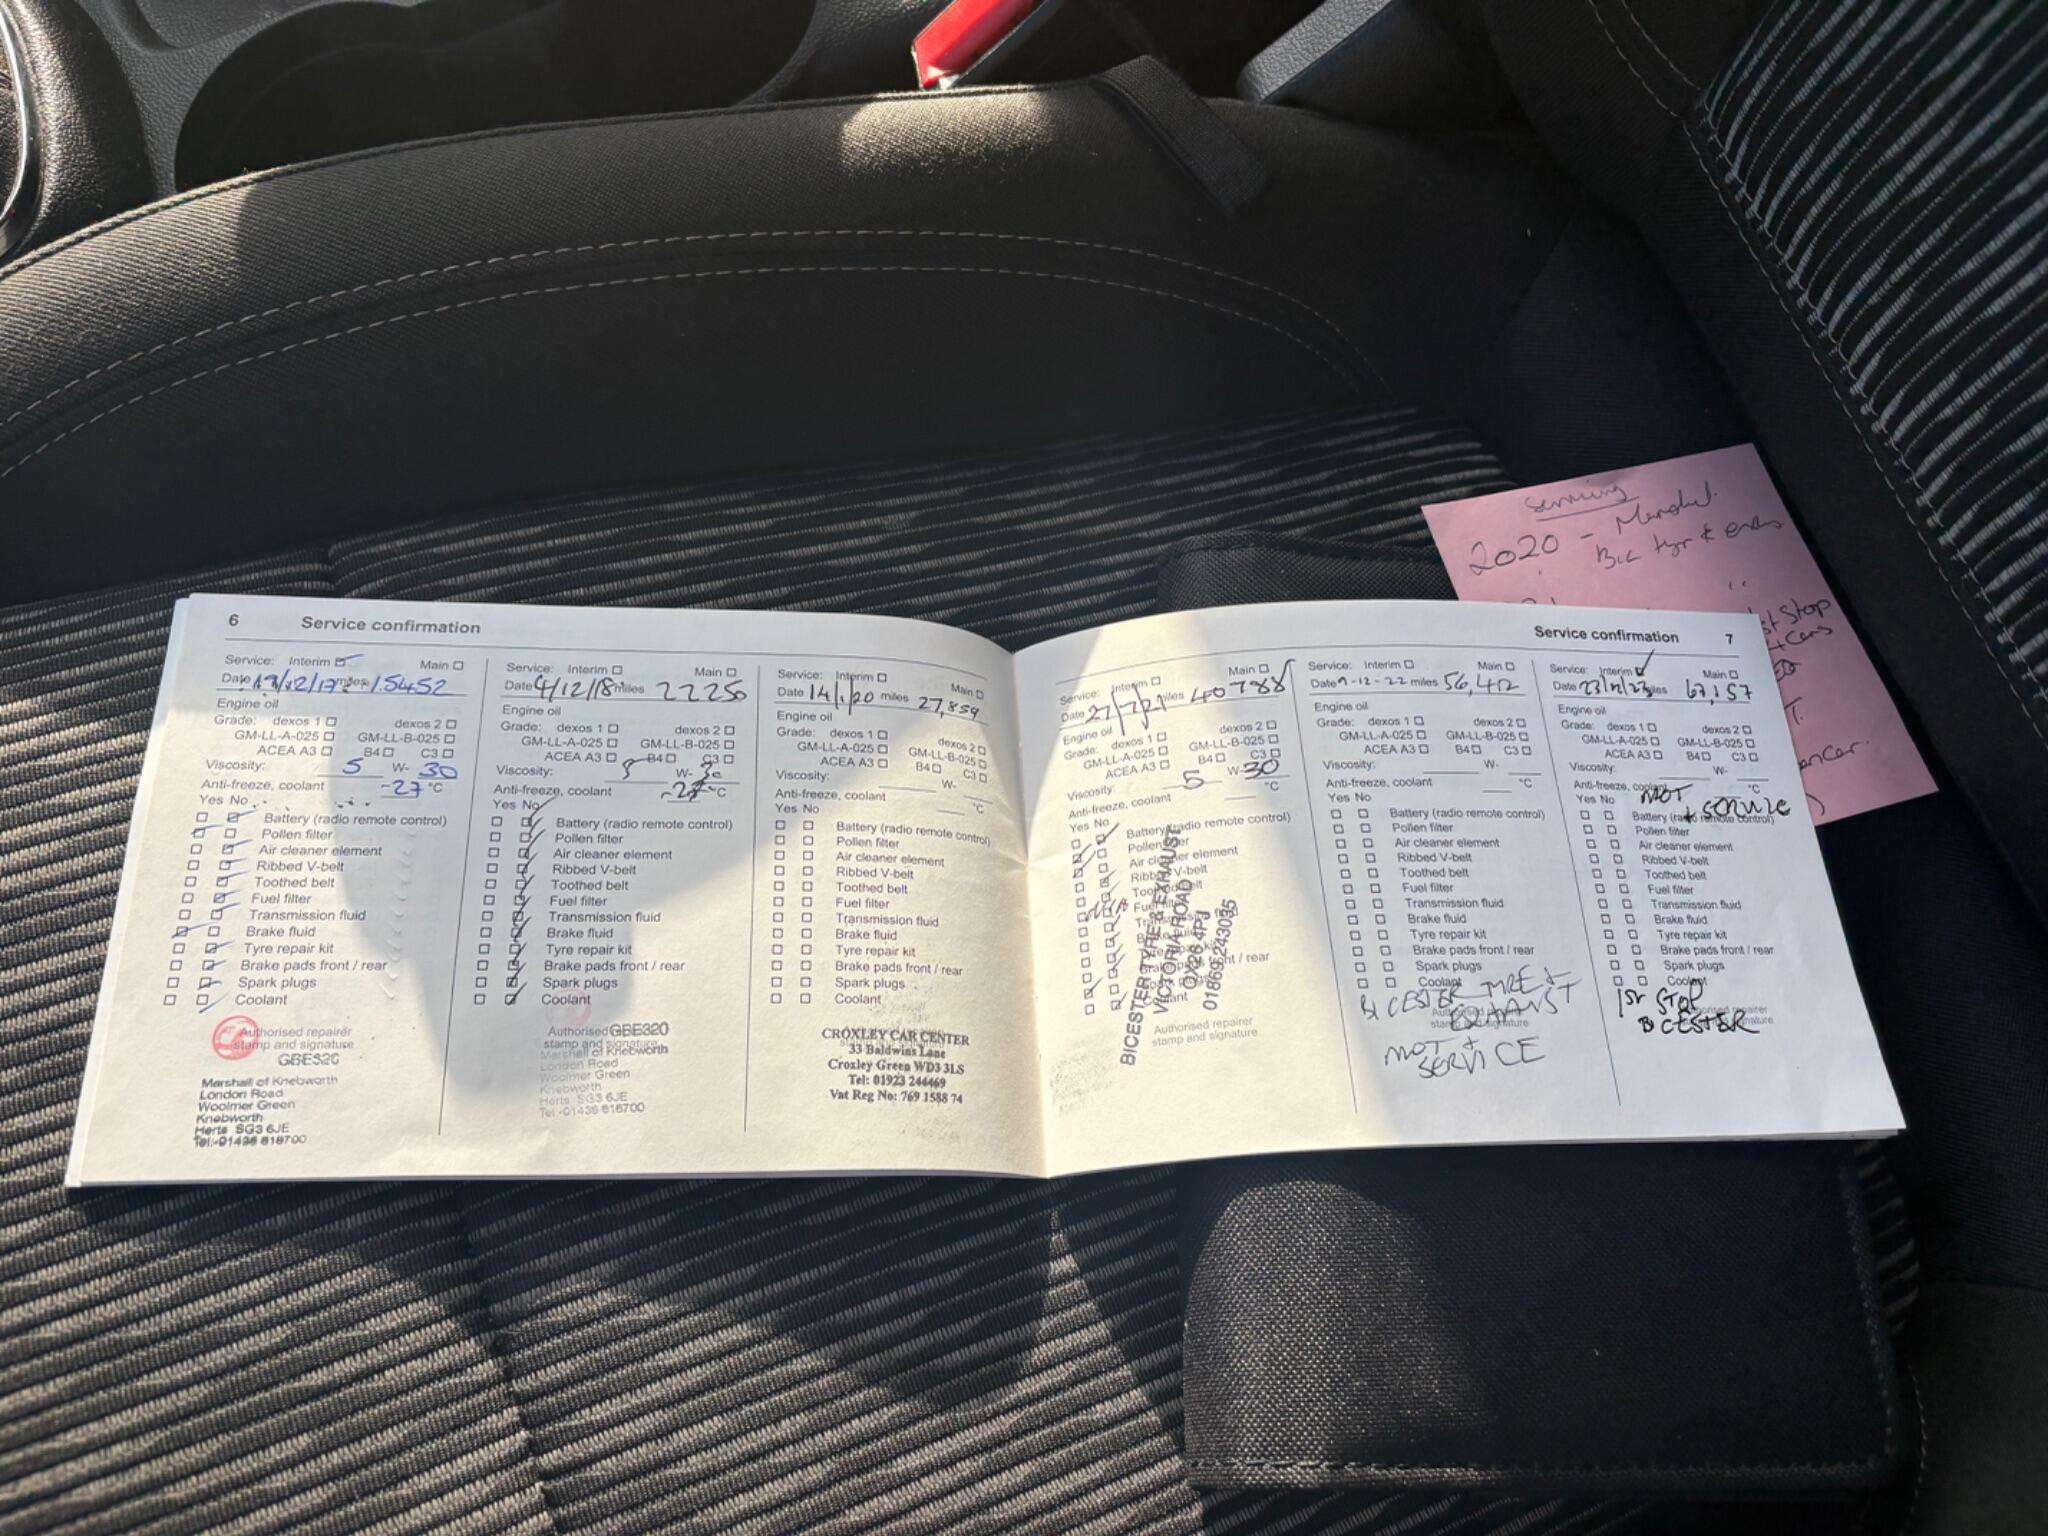 6 Service confirmation
Service: Interim Main
Date miles 15452
Engine oil
Grade: dexos 1 dexos 2
GM-LL-A-025 GM-LL-B-025
ACEA A3 B4 C3
Viscosity: 5 W- 30
Anti-freeze, coolant -27 °C
Yes No
Battery (radio remote control)
Pollen filter
Air cleaner element
Ribbed V-belt
Toothed belt
Fuel filter
Transmission fluid
Brake fluid
Tyre repair kit
Brake pads front / rear
Spark plugs
Coolant
Authorised repairer
stamp and signature
Marshall of Knebworth
London Road
Woolmer Green
Knebworth
Herts SG3 6JE
Tel:-01438 816700
Service: Interim Main
Date 4/12/18 miles 22250
Engine oil
Grade: dexos 1 dexos 2
GM-LL-A-025 GM-LL-B-025
ACEA A3 B4 C3
Viscosity: 5 W- 30
Anti-freeze, coolant -27 °C
Yes No
Battery (radio remote control)
Pollen filter
Air cleaner element
Ribbed V-belt
Toothed belt
Fuel filter
Transmission fluid
Brake fluid
Tyre repair kit
Brake pads front / rear
Spark plugs
Coolant
Authorised GBE320
stamp and signature
Marshall of Knebworth
London Road
Woolmer Green
Knebworth
Herts SG3 6JE
Tel:-01438 816700
Service: Interim Main
Date 14/1/20 miles 27,859
Engine oil
Grade: dexos 1 dexos 2
GM-LL-A-025 GM-LL-B-025
ACEA A3 B4 C3
Viscosity: W-
Anti-freeze, coolant °C
Yes No
Battery (radio remote control)
Pollen filter
Air cleaner element
Ribbed V-belt
Toothed belt
Fuel filter
Transmission fluid
Brake fluid
Tyre repair kit
Brake pads front / rear
Spark plugs
Coolant
CROXLEY CAR CENTER
33 Baldwins Lane
Croxley Green WD3 3LS
Tel: 01923 244469
Vat Reg No: 769 1588 74
Service confirmation 7
Service: Interim Main
Date 27/7/21 miles 40788
Engine oil
Grade: dexos 1 dexos 2
GM-LL-A-025 GM-LL-B-025
ACEA A3 B4 C3
Viscosity: 5 W- 30
Anti-freeze, coolant °C
Yes No
Battery (radio remote control)
Pollen filter
Air cleaner element
Ribbed V-belt
Toothed belt
Coolant
BICESTER TYRE & EXHAUST
VICTORIA ROAD
OX26 4PJ
01869 243035
Authorised repairer
stamp and signature
Service: Interim Main
Date 9-12-22 miles 56,412
Engine oil
Grade: dexos 1 dexos 2
GM-LL-A-025 GM-LL-B-025
ACEA A3 B4 C3
Viscosity: W-
Anti-freeze, coolant °C
Yes No
Battery (radio remote control)
Pollen filter
Air cleaner element
Ribbed V-belt
Toothed belt
Fuel filter
Transmission fluid
Brake fluid
Tyre repair kit
Brake pads front / rear
Spark plugs
Coolant
BICESTER TYRE &
EXHAUST
stamp and signature
MOT &
SERVICE
Service: Interim Main
Date miles 67,157
Engine oil
Grade: dexos 1 dexos 2
GM-LL-A-025 GM-LL-B-025
ACEA A3 B4 C3
Viscosity: W-
Anti-freeze, coolant °C
Yes No MOT
+ SERVICE
Battery (radio remote control)
Pollen filter
Air cleaner element
Ribbed V-belt
Toothed belt
Fuel filter
Transmission fluid
Brake fluid
Tyre repair kit
Brake pads front / rear
Spark plugs
Coolant
1ST STOP
BICESTER
Servicing
2020 -
Stop